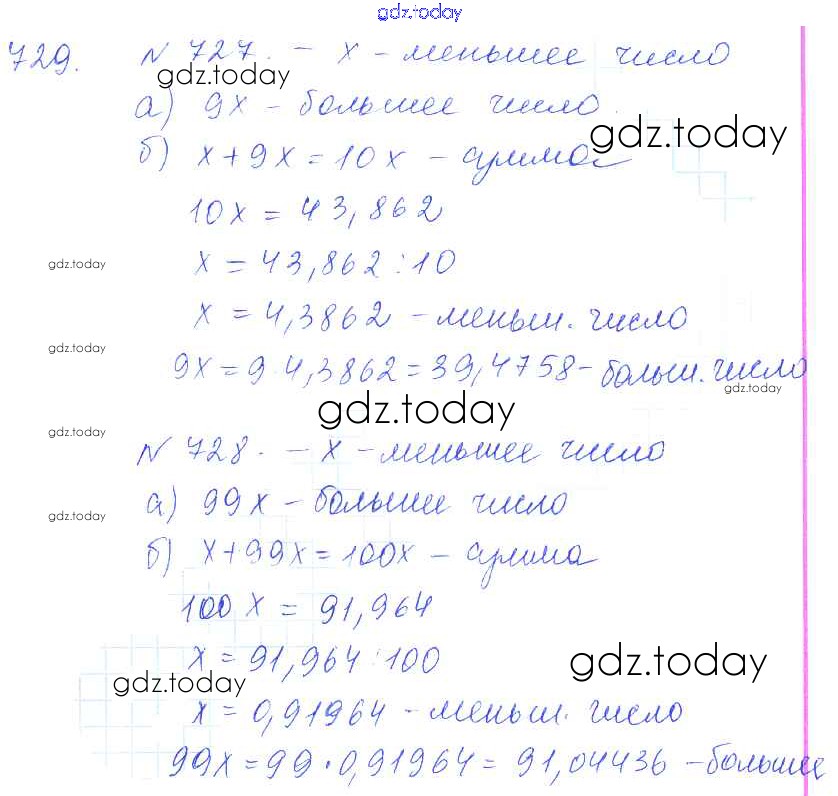 gdz.today
729. № 727. – x – меньшее число
gdz.today
а) 9x – большее число.
gdz.today
б) x + 9x = 10x – сумма
10x = 43,862
gdz.today
x = 43,862 : 10
x = 4,3862 – меньш. число
gdz.today
9x = 9 · 4,3862 = 39,4758 – больш. число
gdz.today
gdz.today
gdz.today
№ 728. – x – меньшее число
а) 99x – большее число
gdz.today
б) x + 99x = 100x – сумма
100x = 91,964
x = 91,964 : 100
gdz.today
gdz.today
x = 0,91964 – меньш. число
99x = 99 · 0,91964 = 91,04436 – большее